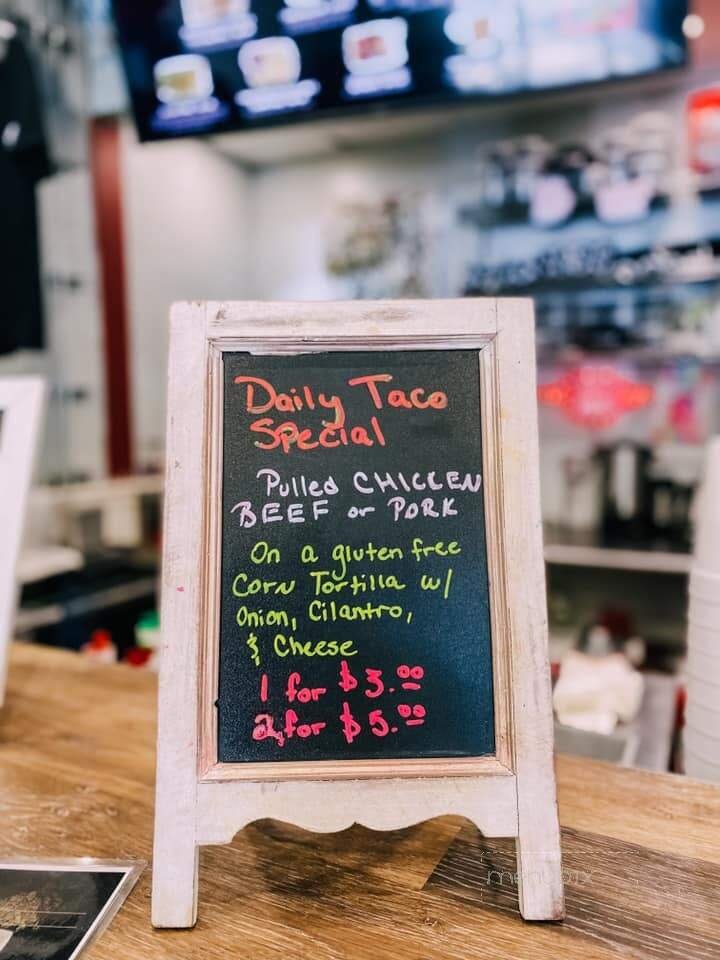 Daily Taco
Special
Pulled CHICKEN
BEEF or PORK
On a gluten free
Corn Tortilla w/
Onion, Cilantro,
& Cheese
1 for $3.00
2 for $5.00